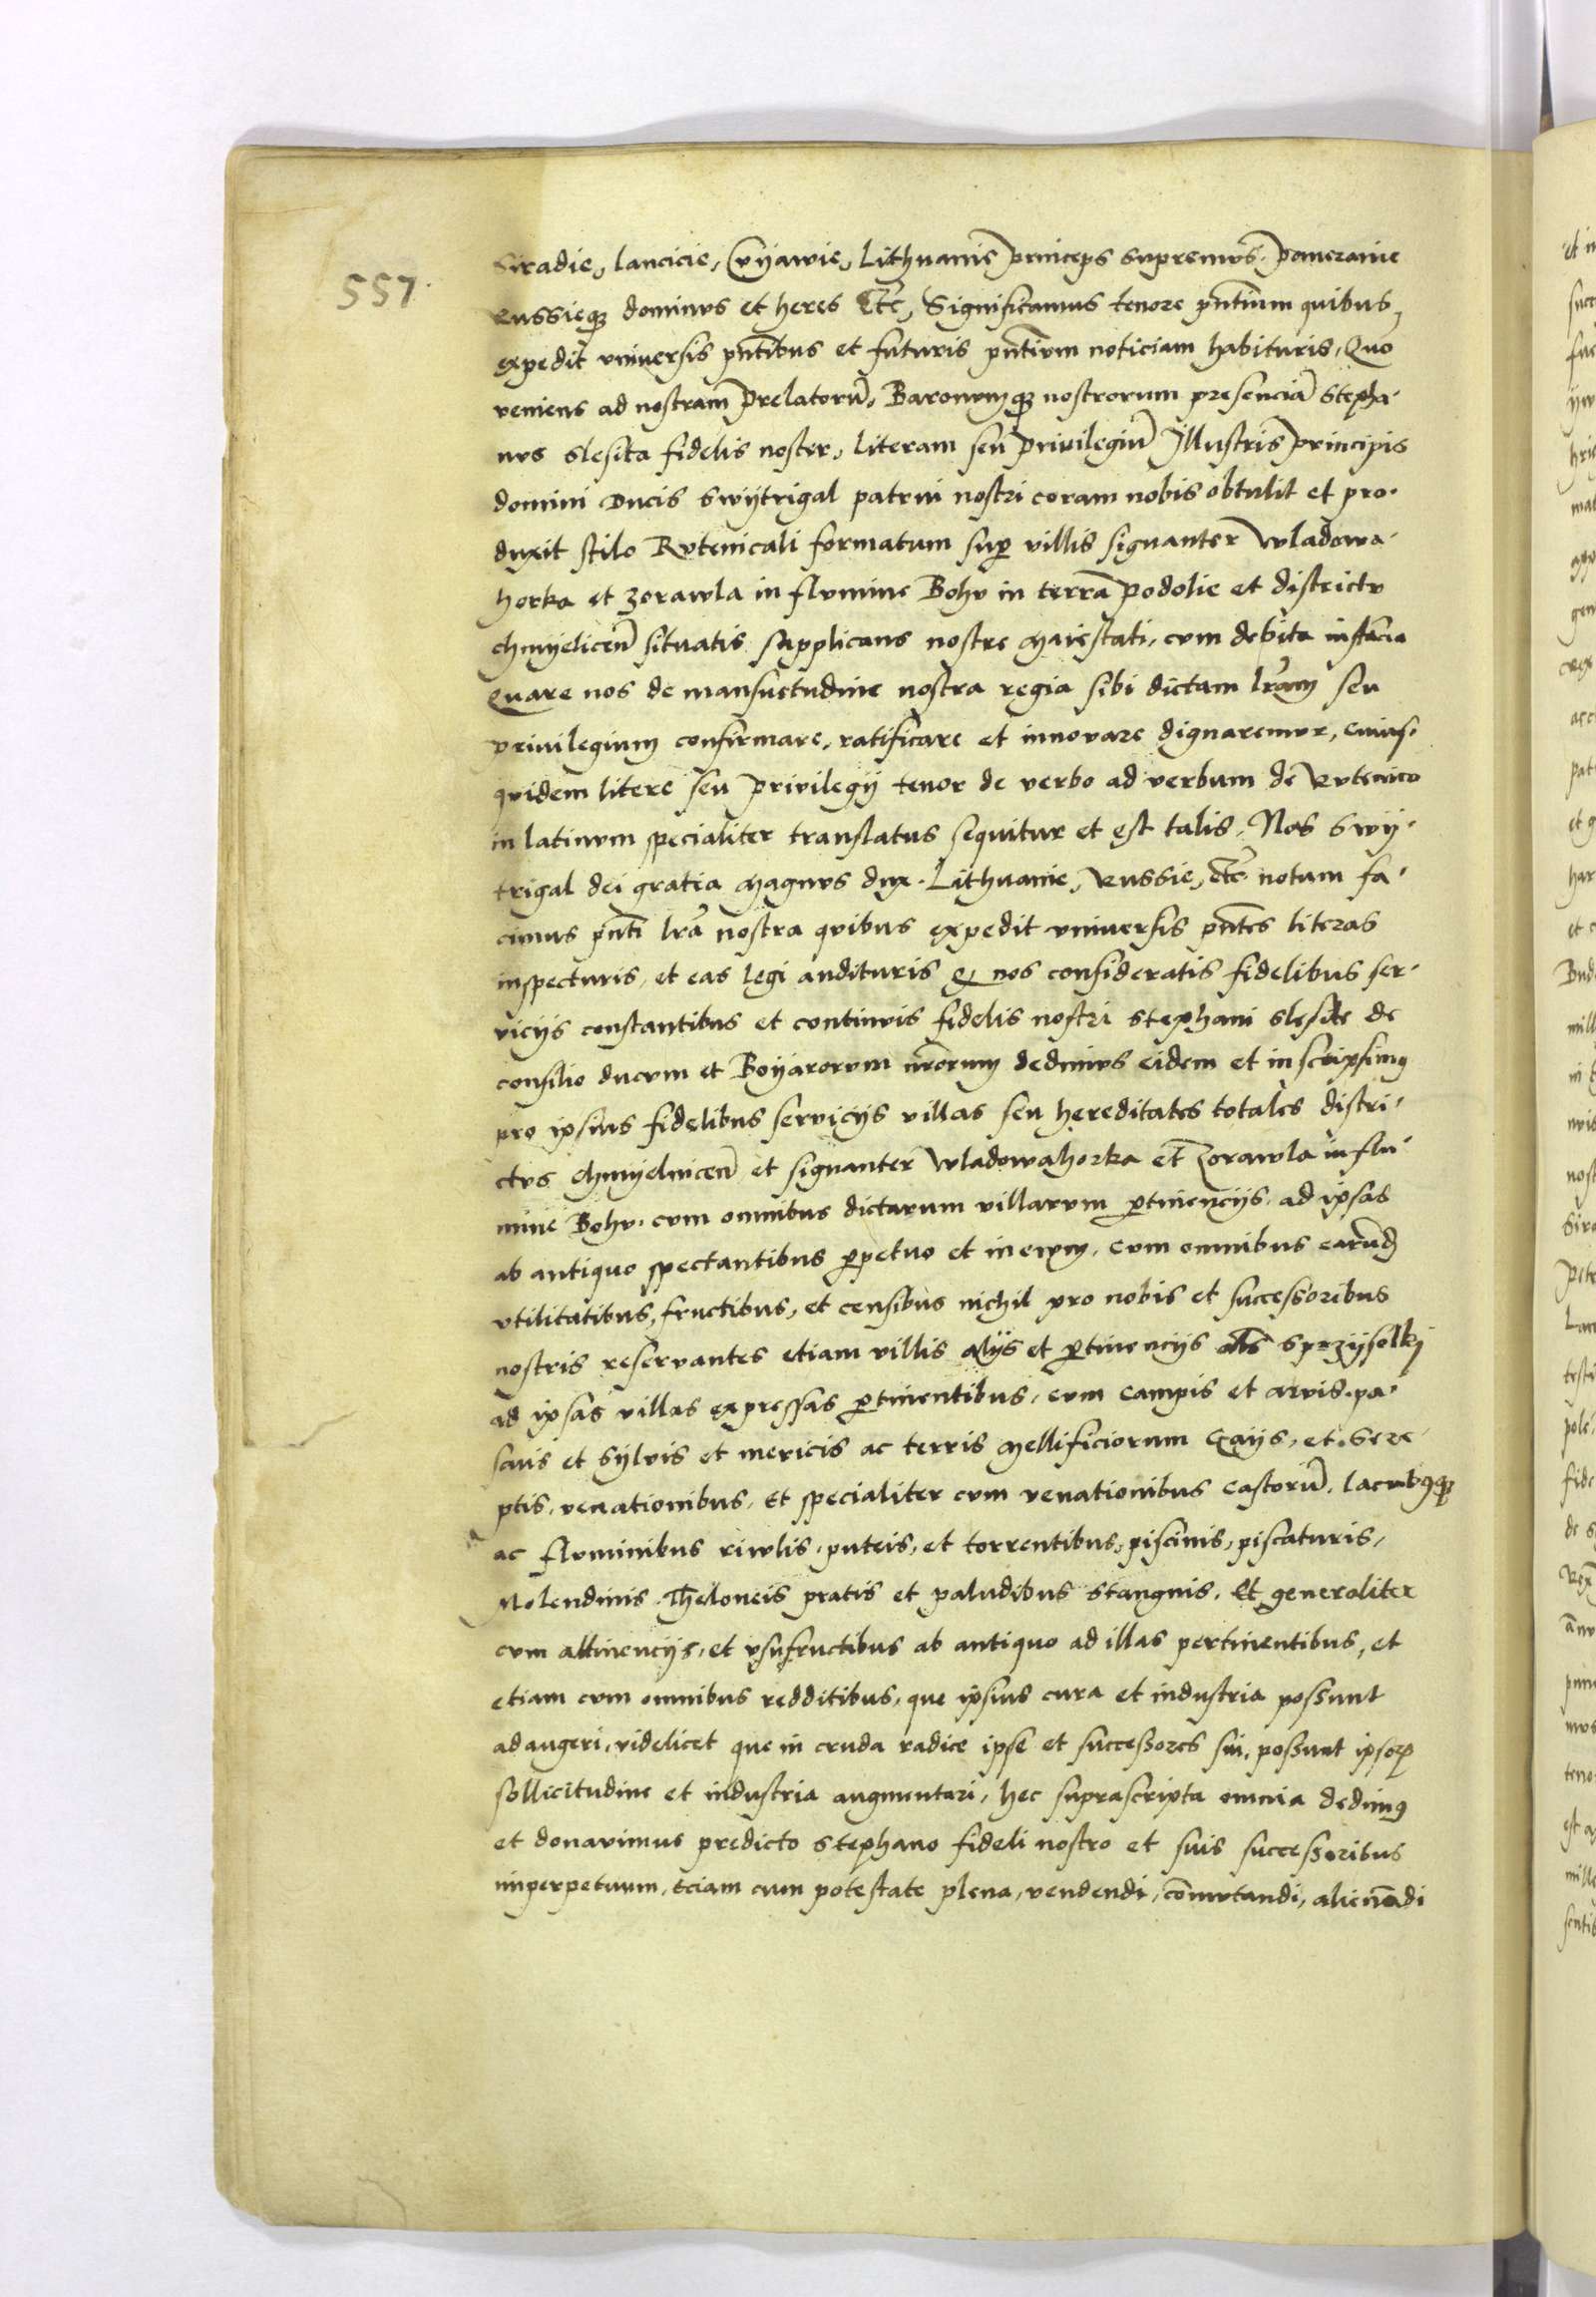 557.
Siradie, lancicie, Cuyawie, Lithuanie princeps supremus, pomeranie
Russieq3 dominus et heres Etc, Significamus tenore pn̄tium quibus
expedit vniuersis pn̄tibus et futuris pn̄tium noticiam habituris, Quo
veniens ad nostram prelatorū, Baronumq3 nostrorum presenciā Stepha-
nus slesita fidelis noster, literam seu priuilegiū Illustris principis
domini Ducis Swytrigal patrui nostri coram nobis obtulit et pro-
duxit stilo Rutenicali formatum sup villis signanter wladowa-
horka et zorawla in flumine Bohu in terra podolie et districtu
chmyelicen̄ situatis supplicans nostre Maiestati, cum debita instācia
Quare nos de mansuetudine nostra regia sibi dictam lrām seu
priuilegium confirmare, ratificare et innouare dignaremur, cuius-
quidem litere seu priuilegij tenor de verbo ad verbum de Rutenico
in latinum specialiter translatus sequitur et est talis, Nos Swy-
trigal dei gratia Magnus dux Lithuanie, Russie, etc notum fa-
cimus pn̄ti lrā nostra quibus expedit vniuersis pn̄tes literas
inspecturis, et eas legi audituris Q nos consideratis fidelibus ser-
vicijs constantibus et continuis fidelis nostri stephani slesite de
consilio ducum et Boyarorum nrōrum dedimus eidem et inscripsimus
pro ipsius fidelibus seruicijs villas seu hereditates totales distri-
ctus Chmyelnicen̄ et signanter wladowahorka et Zorawla in flu-
mine Bohu cum omnibus dictarum villarum ptinencijs ad ipsas
ab antiquo spectantibus ppetuo et in euum, cum omnibus earūd
vtilitatibus, fructibus, et censibus nichil pro nobis et successoribus
nostris reseruantes etiam villis alijs et ptinencijs als sprzyselky
ad ipsas villas expressas ptinentibus, cum campis et aruis, pa-
scuis et syluis et mericis ac terris Mellificiorum Gaijs, et
venationibus, Et specialiter cum venationibus Castorū, lacubusq3
ac fluminibus riwlis, puteis, et torrentibus, piscinis, piscaturis,
Molendinis, Theloneis pratis et paludibus stangnis, Et generaliter
cum attinencijs, et vsufructibus ab antiquo ad illas pertinentibus, et
etiam cum omnibus redditibus, que ipsius cura et industria possunt
adaugeri, videlicet que in cruda radice ipse et successores sui, possunt ipsorum
sollicitudine et industria augmentari, hec suprascripta omnia dedimus
et donauimus predicto stephano fideli nostro et suis successoribus
imperpetuum, eciam cum potestate plena, vendendi, cōmutandi, alienādi